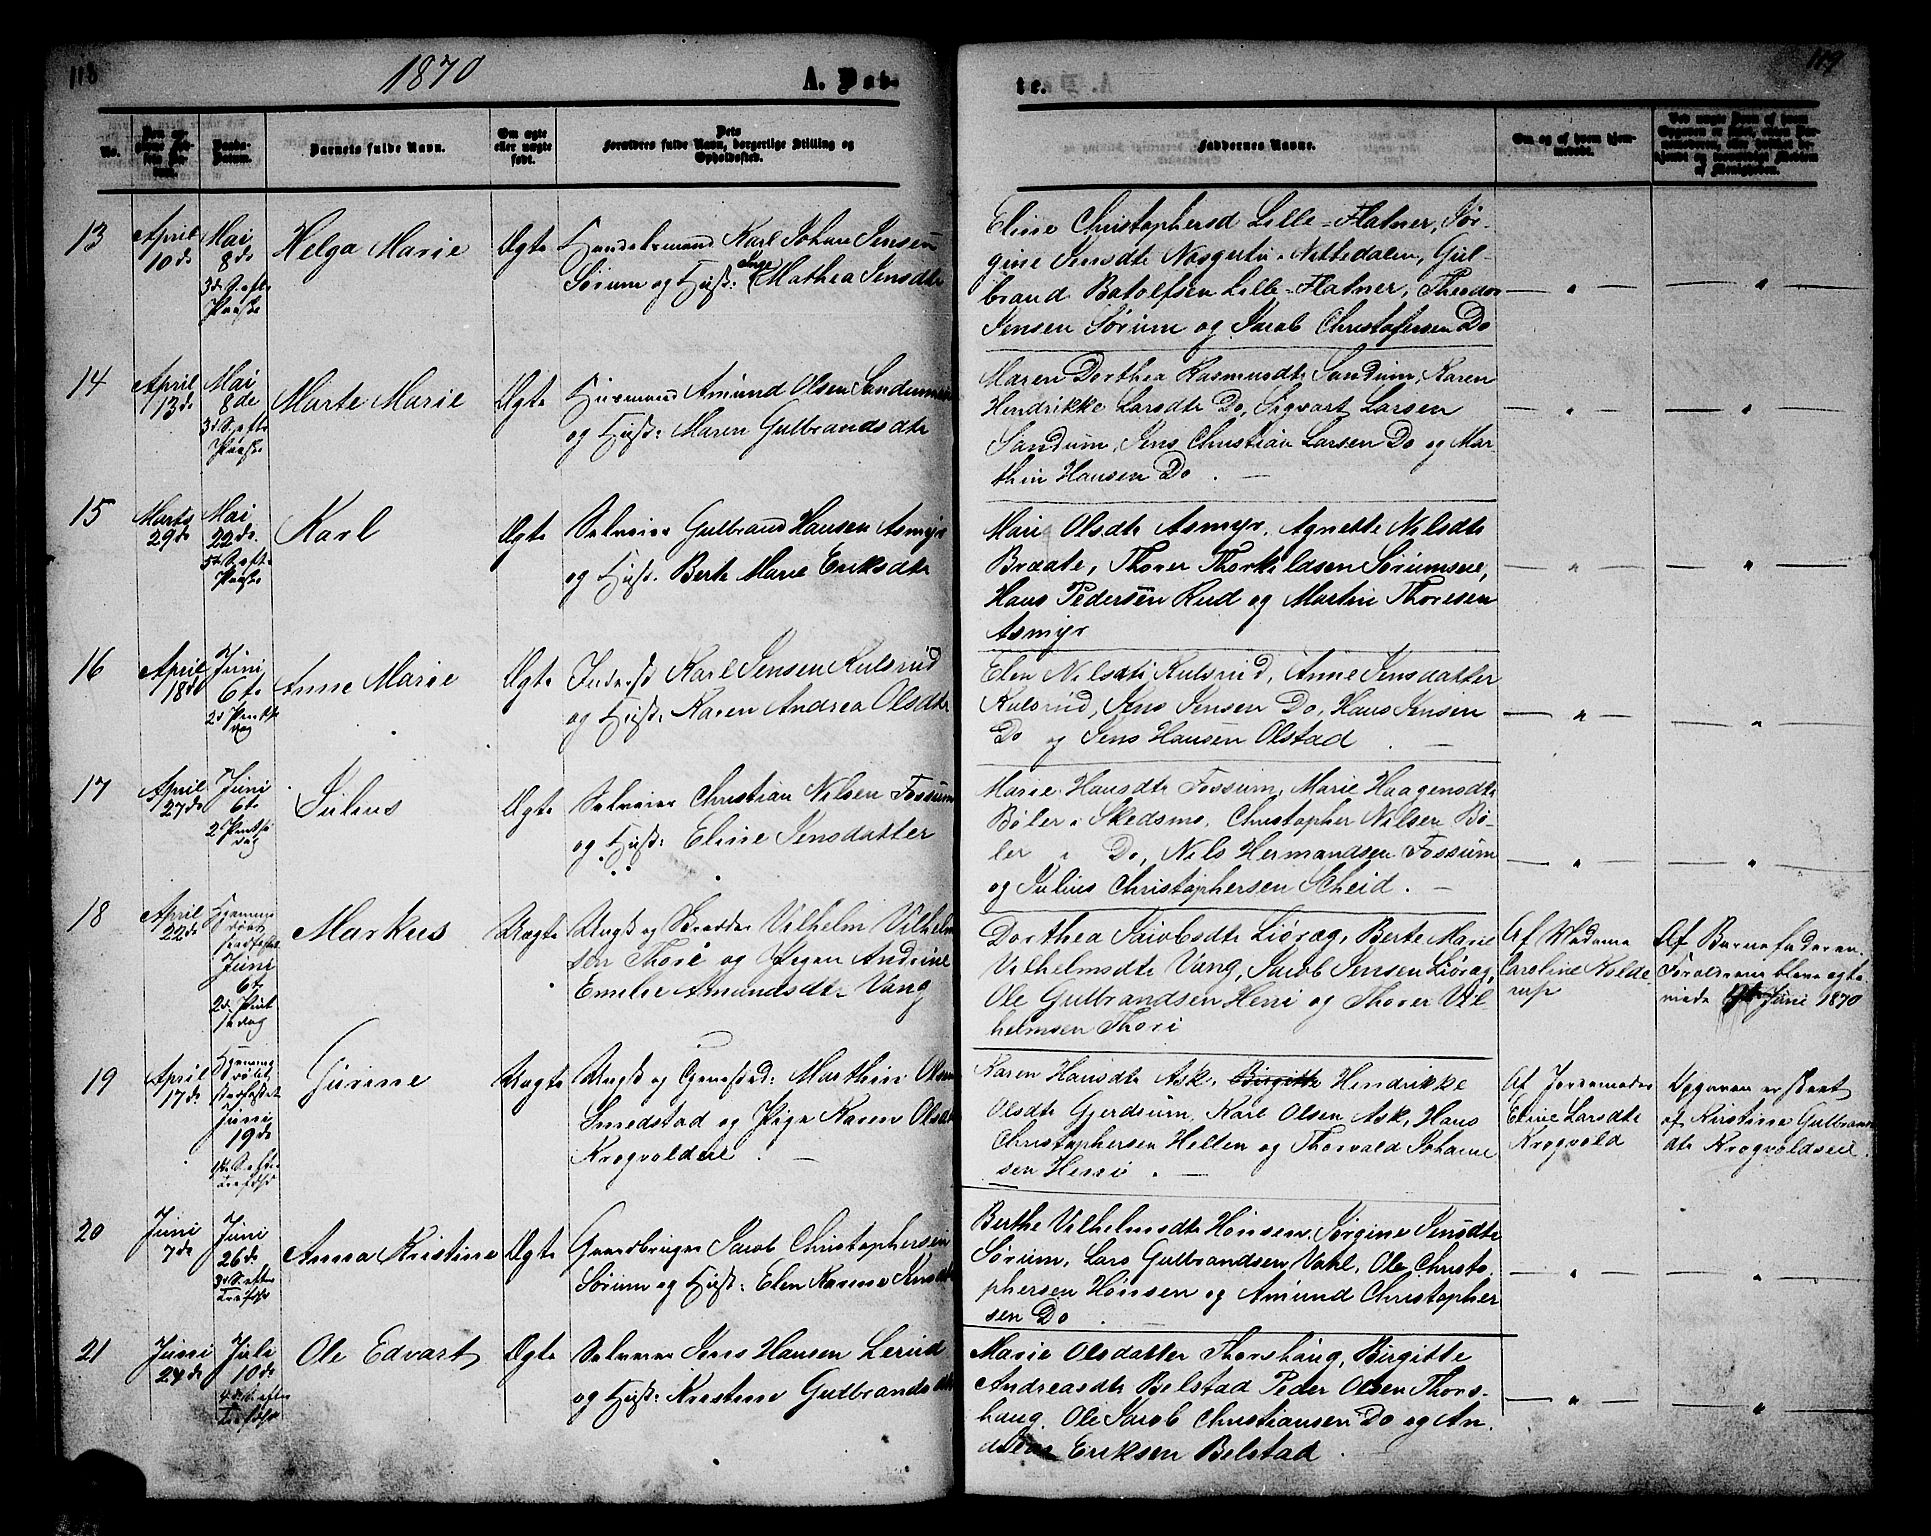 118
1870
A. Døb-
te.
119
No.
Barnets fulde Navn.
Om ægte
eller uægte
født.
Forældres fulde Navn, borgerlige Stilling og
Opholdssted.
Faddernes Navne.
13
April
10de
Mai
8de
3d S. eftr
Paaske
Helga Marie
Ægte
Handelsmand Karl Johan Jensen
Sørum og Hust: Inge Mathea Jensdtr
Eline Christophersd Lille-Flatner, Jør-
gine Jensdtr Nittedalen, Gul-
brand Batolfsen Lille-Flatner, Theodor
Jensen Sørum og Jacob Christofersen Do
14
April
13de
Mai
8de
3d S. eftr
Paaske
Marte Marie
Ægte
Huusmand Amund Olsen
og Hust: Maren Gulbrandsdtr
Maren Dorthea Rasmusdtr Sandum, Karen
Hendrikke Larsdtr Do, Sigvart Larsen
Sandum, Jens Christian Larsen Do og Mar-
thin Hansen Do. —
15
Marts
29de
Mai
22de
5te S. eftr
Paaske
Karl
Ægte
Selveier Gulbrand Hansen Asmyr
og Hust. Berte Marie Eriksdtr
Mari Olsdtr Asmyr, Agnette Nilsdtr
Braate, Thorer Thorkildsen Sørumseie,
Hans Pedersen Rud og Martin Thoresen
Asmyr
16
April
18de
Juni
6te
2d Pintse
dag
Anne Marie
Ægte
Inderst Karl Jensen Kulsrud
og Hust: Karen Andrea Olsdtr
Elen Nilsdtr Kulsrud, Anne Jensdatter
Kulsrud, Jens Jensen Do, Hans Jensen
Do og Jens Hansen Olstad. —
17
April
27de
Juni
6te
2 Pintse
dag
Julius
Ægte
Selveier Christian Nilsen Fossum
og Hust: Eline Jensdatter
Marie Hansdtr Fossum, Marie Haagensdtr
Bøler i Skedsmo, Christopher Nilsen Bø-
ler i Do, Nils Hermandsen Fossum
og Julius Christophersen Scheid. —
18
April
22de
Hjemme
døbt
stadfæstet
Juni
6te
2d Pint
sedag
Markus
Uægte
Ungk og Skrædder Vilhelm Vilhelm
sen Thori og Pigen Andrine
Emilie Amundsdtr Vang
Dorthea Jacobsdtr Liøræg, Berte Marie
Vilhelmsdtr Vang, Jacob Jensen Liøræg,
Ole Gulbrandsen Heni og Thorer Vil-
helmsen Thori
Af Madame
Caroline Kolde-
rup
Af Barnefaderen.
Forældrene bleve ægte-
viede Juni 1870
19
April
17de
Hjemme
døbt
stadfæstet
Juni
19de
1ste S. eftr
Trefdhd
Gurine
Uægte
Ungk og Marthin Olsen
Smedstad og Pige Karen Olsdtr
Krogvoldeie. —
Karen Hansdtr Ask, Birgitte Hendrikke
Olsdtr Gjerdrum, Karl Olsen Ask, Hans
Christophersen Hellen og Thorvald Johanne-
sen Henni. —
Af Jordemoder
Eline Larsdtr
Krogvold
Opgaven er skeet
af Kirstine Gulbrands
dtr Krogvoldseie.
20
Juni
7de
Juni
26de
2d S. eftr
Trefdhd
Anna Kristine
Ægte
Gaardbruger Jacob Christophersen
Sørum og Hust: Elen Karine Jensdtr
Berthe Vilhelmsdtr Hønsen, Jørgine Jensdtr
Sørum, Lars Gulbrandsen Vahl, Ole Christo-
phersen Hønsen og Amund Christopher
sen Do
21
Juni
24de
Juli
10de
4de S. eftr
Trefdhd
Ole Edvart
Ægte
Selveier Jens Hansen Lerud
og Hust: Kristine Gulbrandsdtr
Marie Olsdatter Thorshaug, Birgitte
Andreasdtr Belstad Peder Olsen Thors-
haug, Ole Jacob Christiansen Do og An-
dreas Eriksen Belstad.